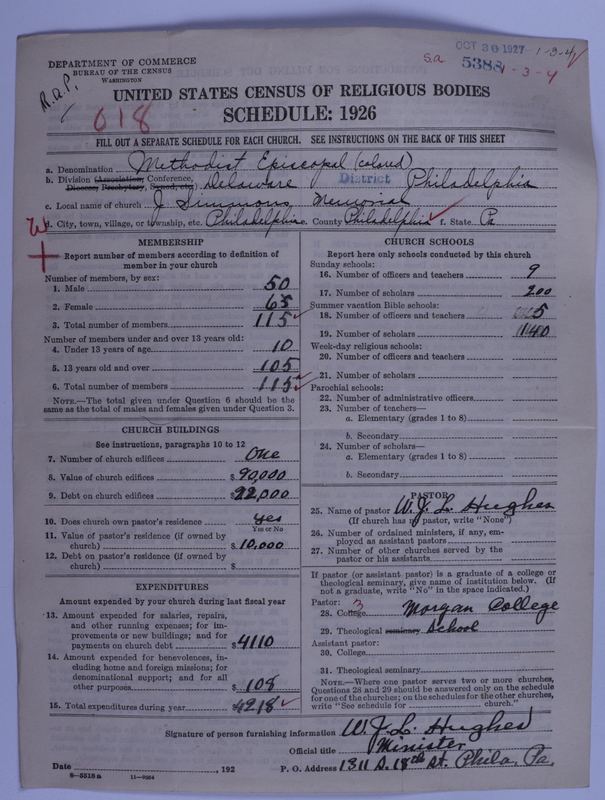 DEPARTMENT OF COMMERCE
BUREAU OF THE CENSUS
WASHINGTON
R.a.P.
OCT 30 1927
1-3-4
S.a
5388
1-3-4
618
UNITED STATES CENSUS OF RELIGIOUS BODIES
SCHEDULE: 1926
FILL OUT A SEPARATE SCHEDULE FOR EACH CHURCH. SEE INSTRUCTIONS ON THE BACK OF THIS SHEET
a. Denomination Methodist Episcopal (colored)
b. Division (Association, Conference, Diocese, Presbytery, Synod, etc.) Delaware District Philadelphia
c. Local name of church J Simmons Memorial
d. City, town, village, or township, etc. Philadelphia e. County Philadelphia f. State Pa
MEMBERSHIP
Report number of members according to definition of
member in your church
Number of members, by sex:
1. Male 50
2. Female 65
3. Total number of members 115
Number of members under and over 13 years old:
4. Under 13 years of age 10
5. 13 years old and over 105
6. Total number of members 115
NOTE.—The total given under Question 6 should be the
same as the total of males and females given under Question 3.
CHURCH BUILDINGS
See instructions, paragraphs 10 to 12
7. Number of church edifices One
8. Value of church edifices $ 90,000
9. Debt on church edifices $ 22,000
10. Does church own pastor's residence yes
Yes or No
11. Value of pastor's residence (if owned by
church) $ 10,000
12. Debt on pastor's residence (if owned by
church) $
EXPENDITURES
Amount expended by your church during last fiscal year
13. Amount expended for salaries, repairs,
and other running expenses; for im-
provements or new buildings; and for
payments on church debt $ 4110
14. Amount expended for benevolences, in-
cluding home and foreign missions; for
denominational support; and for all
other purposes $ 108
15. Total expenditures during year $ 4218
CHURCH SCHOOLS
Report here only schools conducted by this church
Sunday schools:
16. Number of officers and teachers 9
17. Number of scholars 200
Summer vacation Bible schools:
18. Number of officers and teachers 5
19. Number of scholars 140
Week-day religious schools:
20. Number of officers and teachers
21. Number of scholars
Parochial schools:
22. Number of administrative officers
23. Number of teachers—
a. Elementary (grades 1 to 8)
b. Secondary
24. Number of scholars—
a. Elementary (grades 1 to 8)
b. Secondary
PASTOR
25. Name of pastor W. J. L. Hughes
(If church has no pastor, write "None")
26. Number of ordained ministers, if any, em-
ployed as assistant pastors
27. Number of other churches served by the
pastor or his assistants
If pastor (or assistant pastor) is a graduate of a college or
theological seminary, give name of institution below. (If
not a graduate, write "No" in the space indicated.)
Pastor: 3
28. College Morgan College
29. Theological seminary School
Assistant pastor:
30. College
31. Theological seminary
NOTE.—Where one pastor serves two or more churches,
Questions 28 and 29 should be answered only on the schedule
for one of the churches; on the schedules for the other churches,
write "See schedule for church."
Signature of person furnishing information W. J. L. Hughes
Official title Minister
Date , 192 P. O. Address 1311 S. 18th St. Phila, Pa.
8-5518 a 11-9064